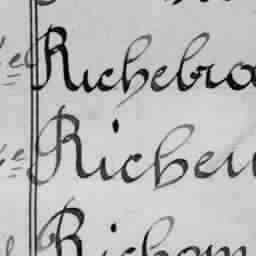 Richebra
Richeu
Richom